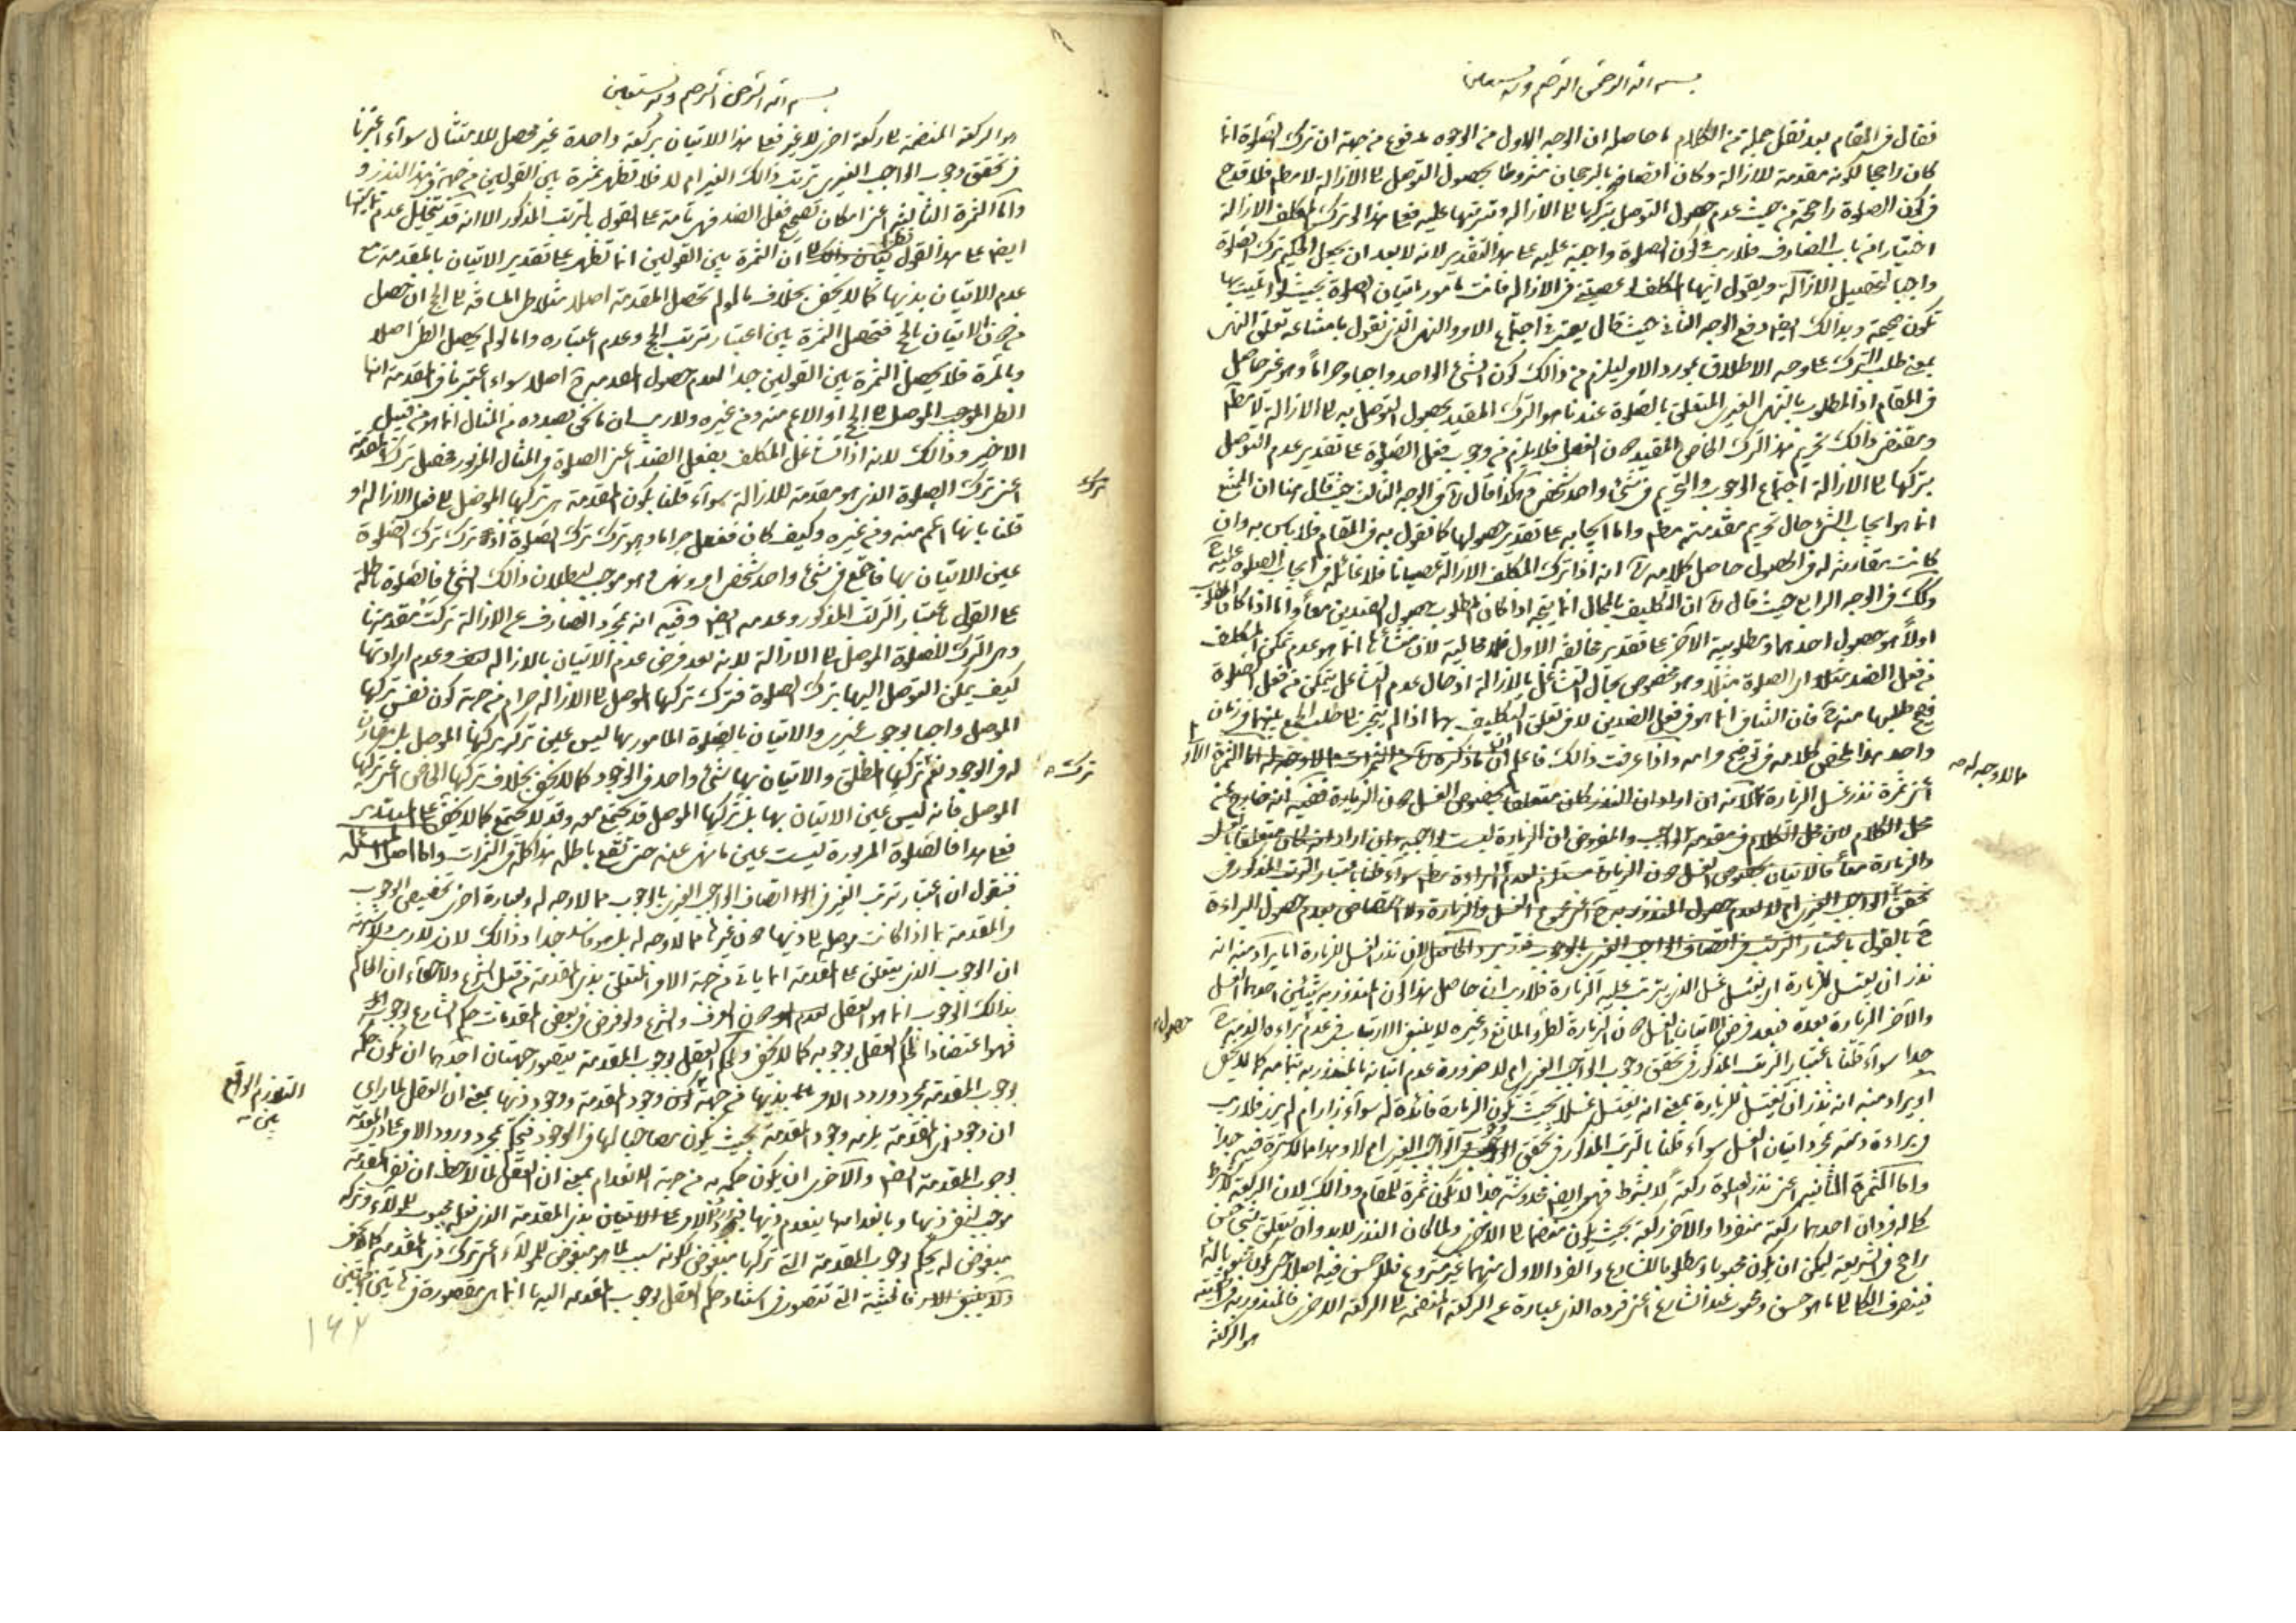 بسم الله الرحمن الرحيم وبه نستعين
فقال في المقام بعد نقل جملة من الكلام ما حاصله ان الوجه الاول من الوجوه مدفوع من جهة ان ترك الصلوة انما
كان راجحا لكونه مقدمة للازالة وكان اتصافه بالرجحان مشروطا بحصول التوصل الى الازالة لا مطم فلا قدح
في كون الصلوة راجحة من حيث عدم حصول التوصل بتركها الى الازالة وترتبها عليه فعلى هذا لو ترك المكلف الازالة
اختيارا من باب الصارف فلا ريب في كون الصلوة واجبة عليه على هذا التقدير لانه لا بعد ان يجعل الحكيم ترك الصلوة
واجبا لتحصيل الازالة ويقول ايها المكلف لو عصيتني في الازالة فانت مأمور باتيان الصلوة بحيث لو اتيت بها
تكون صحيحة وبذلك ايضا دفع الوجه الثاني حيث قال يعتبر في اجتماع الامر والنهي الذي نقول بامتناعه تعلق النهي
بمعنى طلب الترك على وجه الاطلاق بمورد الامر ليلزم من ذلك كون الشئ الواحد واجبا وحراما وهو غير حاصل
في المقام اذ المطلوب بالنهي الغيري المتعلق بالصلوة عندنا هو الترك المقيد بحصول التوصل به الى الازالة لا مطم
ومقتضى ذلك تحريم هذا الترك الخاص المقيد دون الفعل فلا يلزم من وجوب فعل الصلوة على تقدير عدم التوصل
بتركها الى الازالة اجتماع الوجوب والتحريم في شئ واحد شخصي وهكذا قال في الوجه الثالث حيث قال هنا ان الممتنع
انما هو ايجاب الشئ حال تحريم مقدمته مطم واما ايجابه على تقدير حصولها كما نقول به في المقام فلا بأس به وان
كانت مقارنة له في الحصول حاصل كلامه انه اذا ترك المكلف الازالة عصيانا فلا غائلة في ايجاب الصلوة عليه
وكذلك في الوجه الرابع حيث قال ان التكليف بالمحال انما يتجه اذا كان المطلوب حصول الضدين معا واما اذا كان المطلوب
اولا هو حصول احدهما ومطلوبية الآخر على تقدير مخالفة الاول فلا محالية لان منشأها انما هو عدم تمكن المكلف
من فعل الضد مثلا اي الصلوة مثلا وهو مخصوص بحال التشاغل بالازالة اذ حال عدم التشاغل يتمكن من فعل الصلوة
فيصح طلبها منه فان التنافي انما هو في فعل الضدين لا في تعلق التكليف بهما اذا لم ينجر الى طلب الجمع بينهما في زمان
واحد هذا ملخص كلامه في توضيح مرامه واذا عرفت ذلك فاعلم ان ما ذكره من الثمرات مما لا وجه له اما الثمرة الاولى
مما لا وجه له
اعني ثمرة نذر غسل الزيارة فلانه ان اراد ان النذر كان متعلقا بخصوص الغسل دون الزيارة ففيه انه خارج عن
محل الكلام لان محل الكلام في مقدمة الواجب والمفروض ان الزيارة ليست واجبة وان اراد انه كان متعلقا بالغسل
والزيارة معا فالاتيان بخصوص الغسل دون الزيارة مستلزم لعدم البراءة مطم سواء قلنا باعتبار الترتب المذكور في
تحقق الواجب الغيري ام لا لعدم حصول المنذور به اعني مجموع الغسل والزيارة ولا اختصاص بعدم حصول البراءة
ح بالقول باعتبار الترتب في اتصاف الواجب الغيري بالوجوب فتدبر والحاصل ان نذر الغسل للزيارة اما يراد منه انه
نذر ان يغتسل للزيارة اي يغتسل غسل الذي يترتب عليه الزيارة فلا ريب ان حاصل هذا كون المنذور به شيئين احدهما الغسل
والآخر الزيارة بعده فبعد فرض الاتيان بالغسل دون الزيارة لطرو المانع وغيره لا ينبغي الارتياب في عدم براءة الذمة
حصول
جدا سواء قلنا باعتبار الترتب المذكور في تحقق وجوب الواجب الغيري ام لا ضرورة عدم اتيانه بالمنذور به بتمامه كما لا يخفى
او يراد منه انه نذر ان يغتسل للزيارة بمعنى انه يغتسل غسلا بحيث يكون الزيارة فائدة له سواء زار ام لم يزر فلا ريب
في براءة ذمته بمجرد اتيان الغسل سواء قلنا بالترتب المذكور في تحقق الواجب الغيري ام لا وهذا مما لا ثمرة فيه جدا
واما الثمرة الثانية اعني نذر الصلوة ركعة لا بشرط فهو ايضا مخدوشة جدا لا تكون ثمرة للمقام وذلك لان الركعة لا بشرط
كما له فردان احدهما ركعة منفردا والآخر ركعة بحيث يكون منضما الى الاخرى ولما كان النذر لا بد وان يتعلق بشئ حسن
راجح في الشريعة ليمكن ان يكون محبوبا ومطلوبا للشارع والفرد الاول منهما غير مشروع فلا حسن فيه اصلا
فينصرف الكلي الى ما هو حسن ومحبوب عند الشارع اعني فرده الذي عبارة عن الركعة المنضمة الى الركعة الاخرى فالمنذور به في الحقيقة
هو الركعة
بسم الله الرحمن الرحيم وبه نستعين
هو الركعة المنضمة الى ركعة اخرى لا غير فعلى هذا الاتيان بركعة واحدة غير محصل للامتثال سواء اعتبرنا
في تحقق وجوب الواجب الغيري ترتب ذلك الغير ام لا فلا تظهر ثمرة بين القولين من جهة هذا النذر
واما الثمرة الثالثة اعني امكان تصحيح فعل الضد فهي تامة على القول بالترتب المذكور الا انه قد يتخيل عدم تماميتها
ايضا على هذا القول نظرا الى ان الثمرة بين القولين انما تظهر على تقدير الاتيان بالمقدمة مع
عدم الاتيان بذيها كما لا يخفى بخلاف ما لو لم تحصل المقدمة اصلا مثلا طي المسافة الى الحج ان حصل
من دون الاتيان بالحج فتحصل الثمرة بين اعتبار ترتب الحج وعدم اعتباره واما لو لم يحصل الطي اصلا
وبالمرة فلا يحصل الثمرة بين القولين جدا لعدم حصول المقدمة ح اصلا سواء اعتبرنا في المقدمة انها
الطي الموجب الموصل الى الحج او الاعم منه ومن غيره ولا ريب ان ما نحن بصدده من المثال انما هو من قبيل
الاخير وذلك لانه اذا تشاغل المكلف بفعل الضد اعني الصلوة في المثال المزبور فحصل ترك المقدمة
اعني ترك الصلوة الذي هو مقدمة للازالة سواء قلنا بكون المقدمة هي تركها الموصل الى فعل الازالة او
ترك
قلنا بانها اعم منه ومن غيره وكيف كان ففعل حراما وهو ترك ترك الصلوة اذ ترك ترك الصلوة
عين الاتيان بها فاجتمع في شئ واحد شخصي امر ونهي وهو موجب لبطلان ذلك الشئ فالصلوة باطلة
على القول باعتبار الترتب المذكور وعدمه ايضا وفيه انه بمجرد الصارف عن الازالة ترك مقدمتها
وهي الترك للصلوة الموصل الى الازالة لانه بعد فرض عدم الاتيان بالازالة وعدم ارادتها
كيف يمكن التوصل اليها بترك الصلوة فترك تركها الموصل الى الازالة حرام من جهة كون نفس تركها
الموصل واجبا بوجوب غيري والاتيان بالصلوة المأمور بها ليس عين ترك تركها الموصل بل مقارن
له في الوجود نعم تركها المطلق والاتيان بها شئ واحد في الوجود كما لا يخفى بخلاف تركها الخاص اعني تركها
ترك
الموصل فانه ليس عين الاتيان بها بل تركها الموصل قد يجتمع معه وقد لا يجتمع كما لا يخفى على المتدبر
فعلى هذا فالصلوة المزبورة ليست عين ما نهى عنه حتى تقع باطلة هذا كله في الثمرات واما اصل المسئلة
فنقول ان اعتبار ترتب الغير في اتصاف الواجب الغيري بالوجوب مما لا وجه له وبعبارة اخرى تخصيص الوجوب
والمقدمة بما اذا كانت موصلة الى ذيها دون غيرها مما لا وجه له بل هو فاسد جدا وذلك لانه لا ريب ولا شبهة
ان الوجوب الذي يتعلق على المقدمة انما يأتي من جهة الامر المتعلق بذي المقدمة من قبل الشرع ولا خفاء ان الحاكم
بذلك الوجوب انما هو العقل دون العرف والشرع ولو فرض في بعض المقدمات حكم الشارع بوجوبه
فهو اعتضادا لحكم العقل بوجوبه كما لا يخفى ولحكم العقل بوجوب المقدمة يتصور جهتان احدهما ان يكون حكمه
بوجوب المقدمة بمجرد ورود الامر بذيها من جهة كون وجود المقدمة ووجود ذيها بمعنى ان العقل لما رأى
التلازم الواقع بين
ان وجود ذي المقدمة يلزمه وجود المقدمة بحيث يكون مصاحبا لها في الوجود فيحكم بمجرد ورود الامر على ذي المقدمة
بوجوب المقدمة ايضا والآخر ان يكون حكمه من جهة الانعدام بمعنى ان العقل لما لاحظ ان نفي المقدمة
موجب لنفي ذيها وبانعدامها ينعدم ذيها فبورود الامر على الاتيان بذي المقدمة الذي فعله محبوب للمولى وتركه
مبغوض له يحكم بوجوب المقدمة التي تركها مبغوض لكونه سببا لما هو مبغوض للمولى اعني ترك ذي المقدمة كما لا يخفى
ولا ينبغي فالحيثية التي تتصور في استناد حكم العقل بوجوب المقدمة اليها انما هي مقصورة في هاتين الحيثيتين
۱۶۷